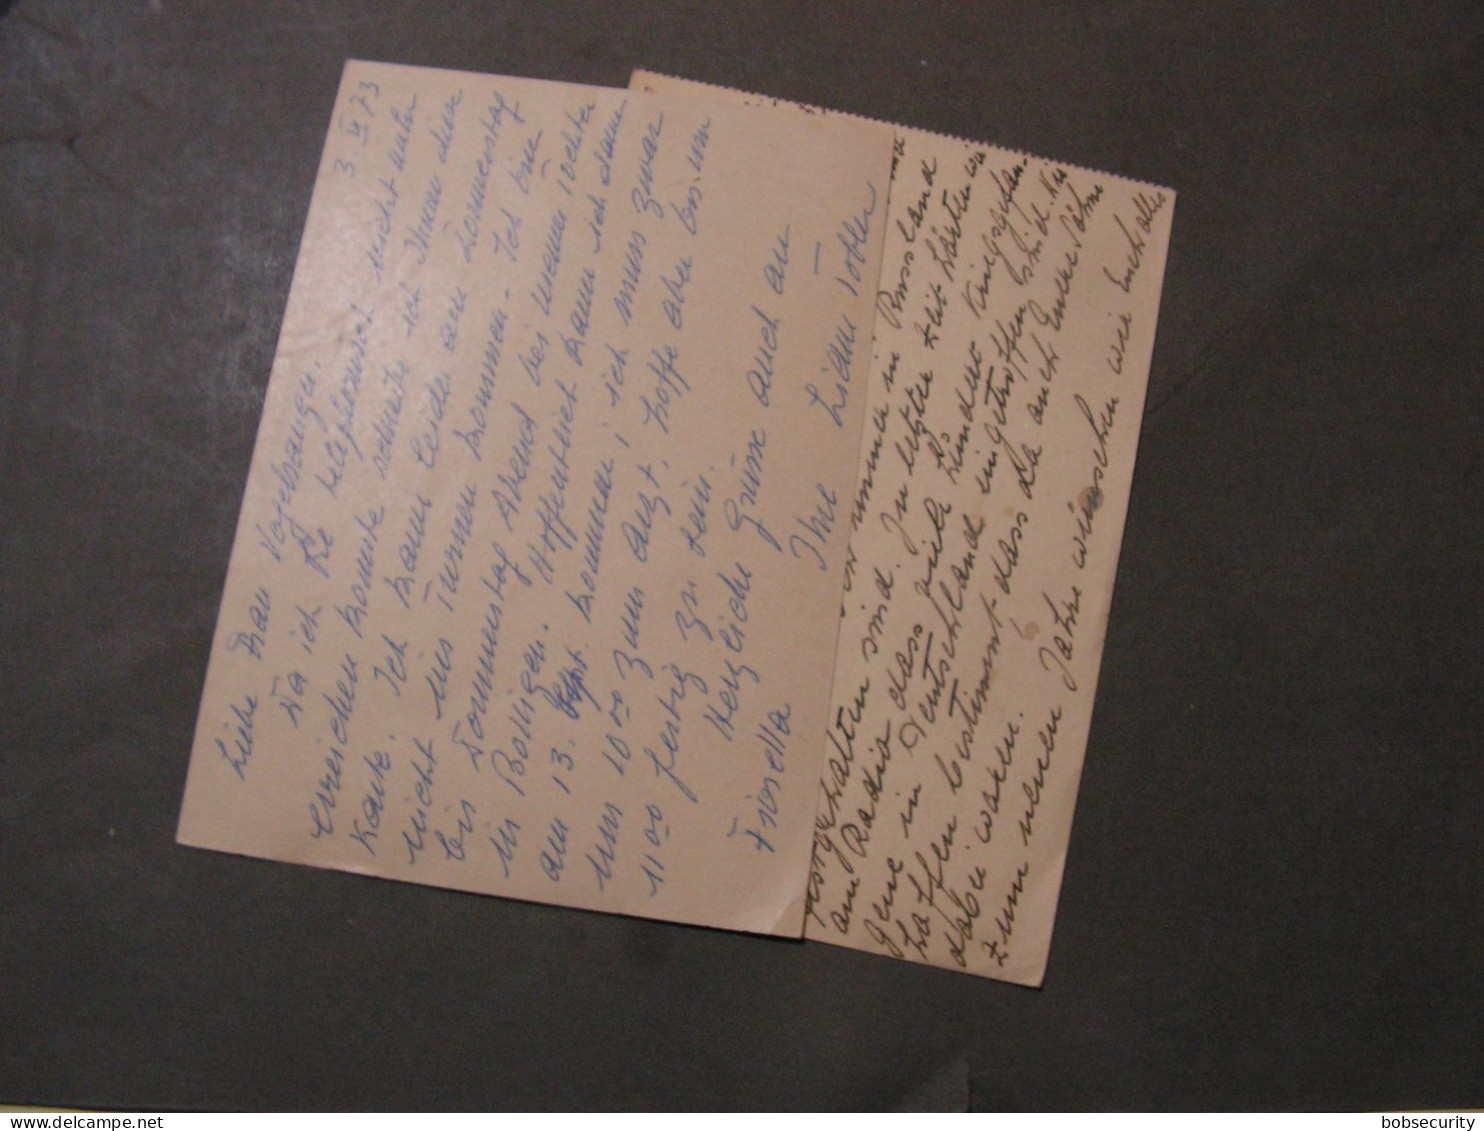 3. IX 73
Liebe Frau Vogelsanger.
Da ich Sie telephonisch nicht
erreichen konnte schreibe ich Ihnen eine
Karte. Ich kann leider am Donnerstag
nicht ins Turnen kommen. Ich bin
bis Donnerstag Abend bei meiner Tochter
in Bolligen. Hoffentlich kann ich dann
am 13. Sept. kommen, ich muss zwar
um 10 00 zum Arzt, hoffe aber bis um
11 00 fertig zu sein.
Herzliche Grüsse auch an
Fiorella Ihre
immer in Russland
festgehalten sind. In letzter Zeit hörten wir
am Radio dass viele Kriegsgefan
gene in Deutschland eingetroffen sind. Wir
hoffen bestimmt dass da auch Eure Söhne
dabei waren.
Zum neuen Jahre wünschen wir Euch alles
bobsecurity